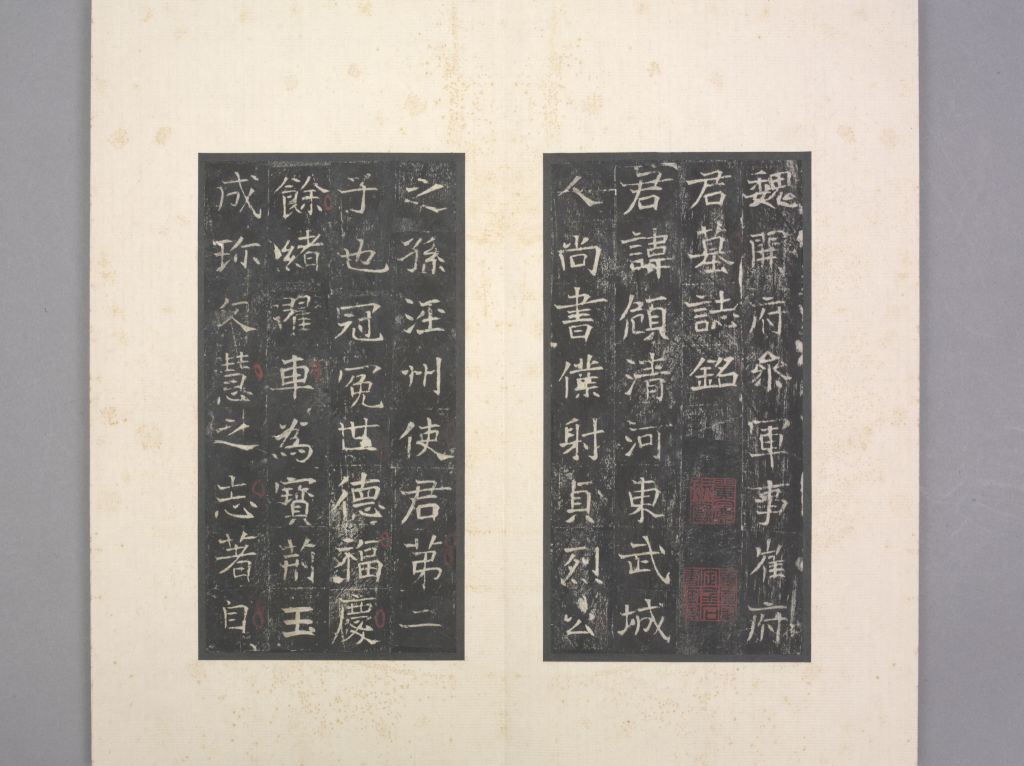 魏開府叅軍事崔府
君墓誌銘
君諱頠清河東武城
人尚書僕射貞烈公
之孫涇州使君苐二
子也冠冕世德福慶
餘緒濯車為寳荊王
成珎欠慧之志著自